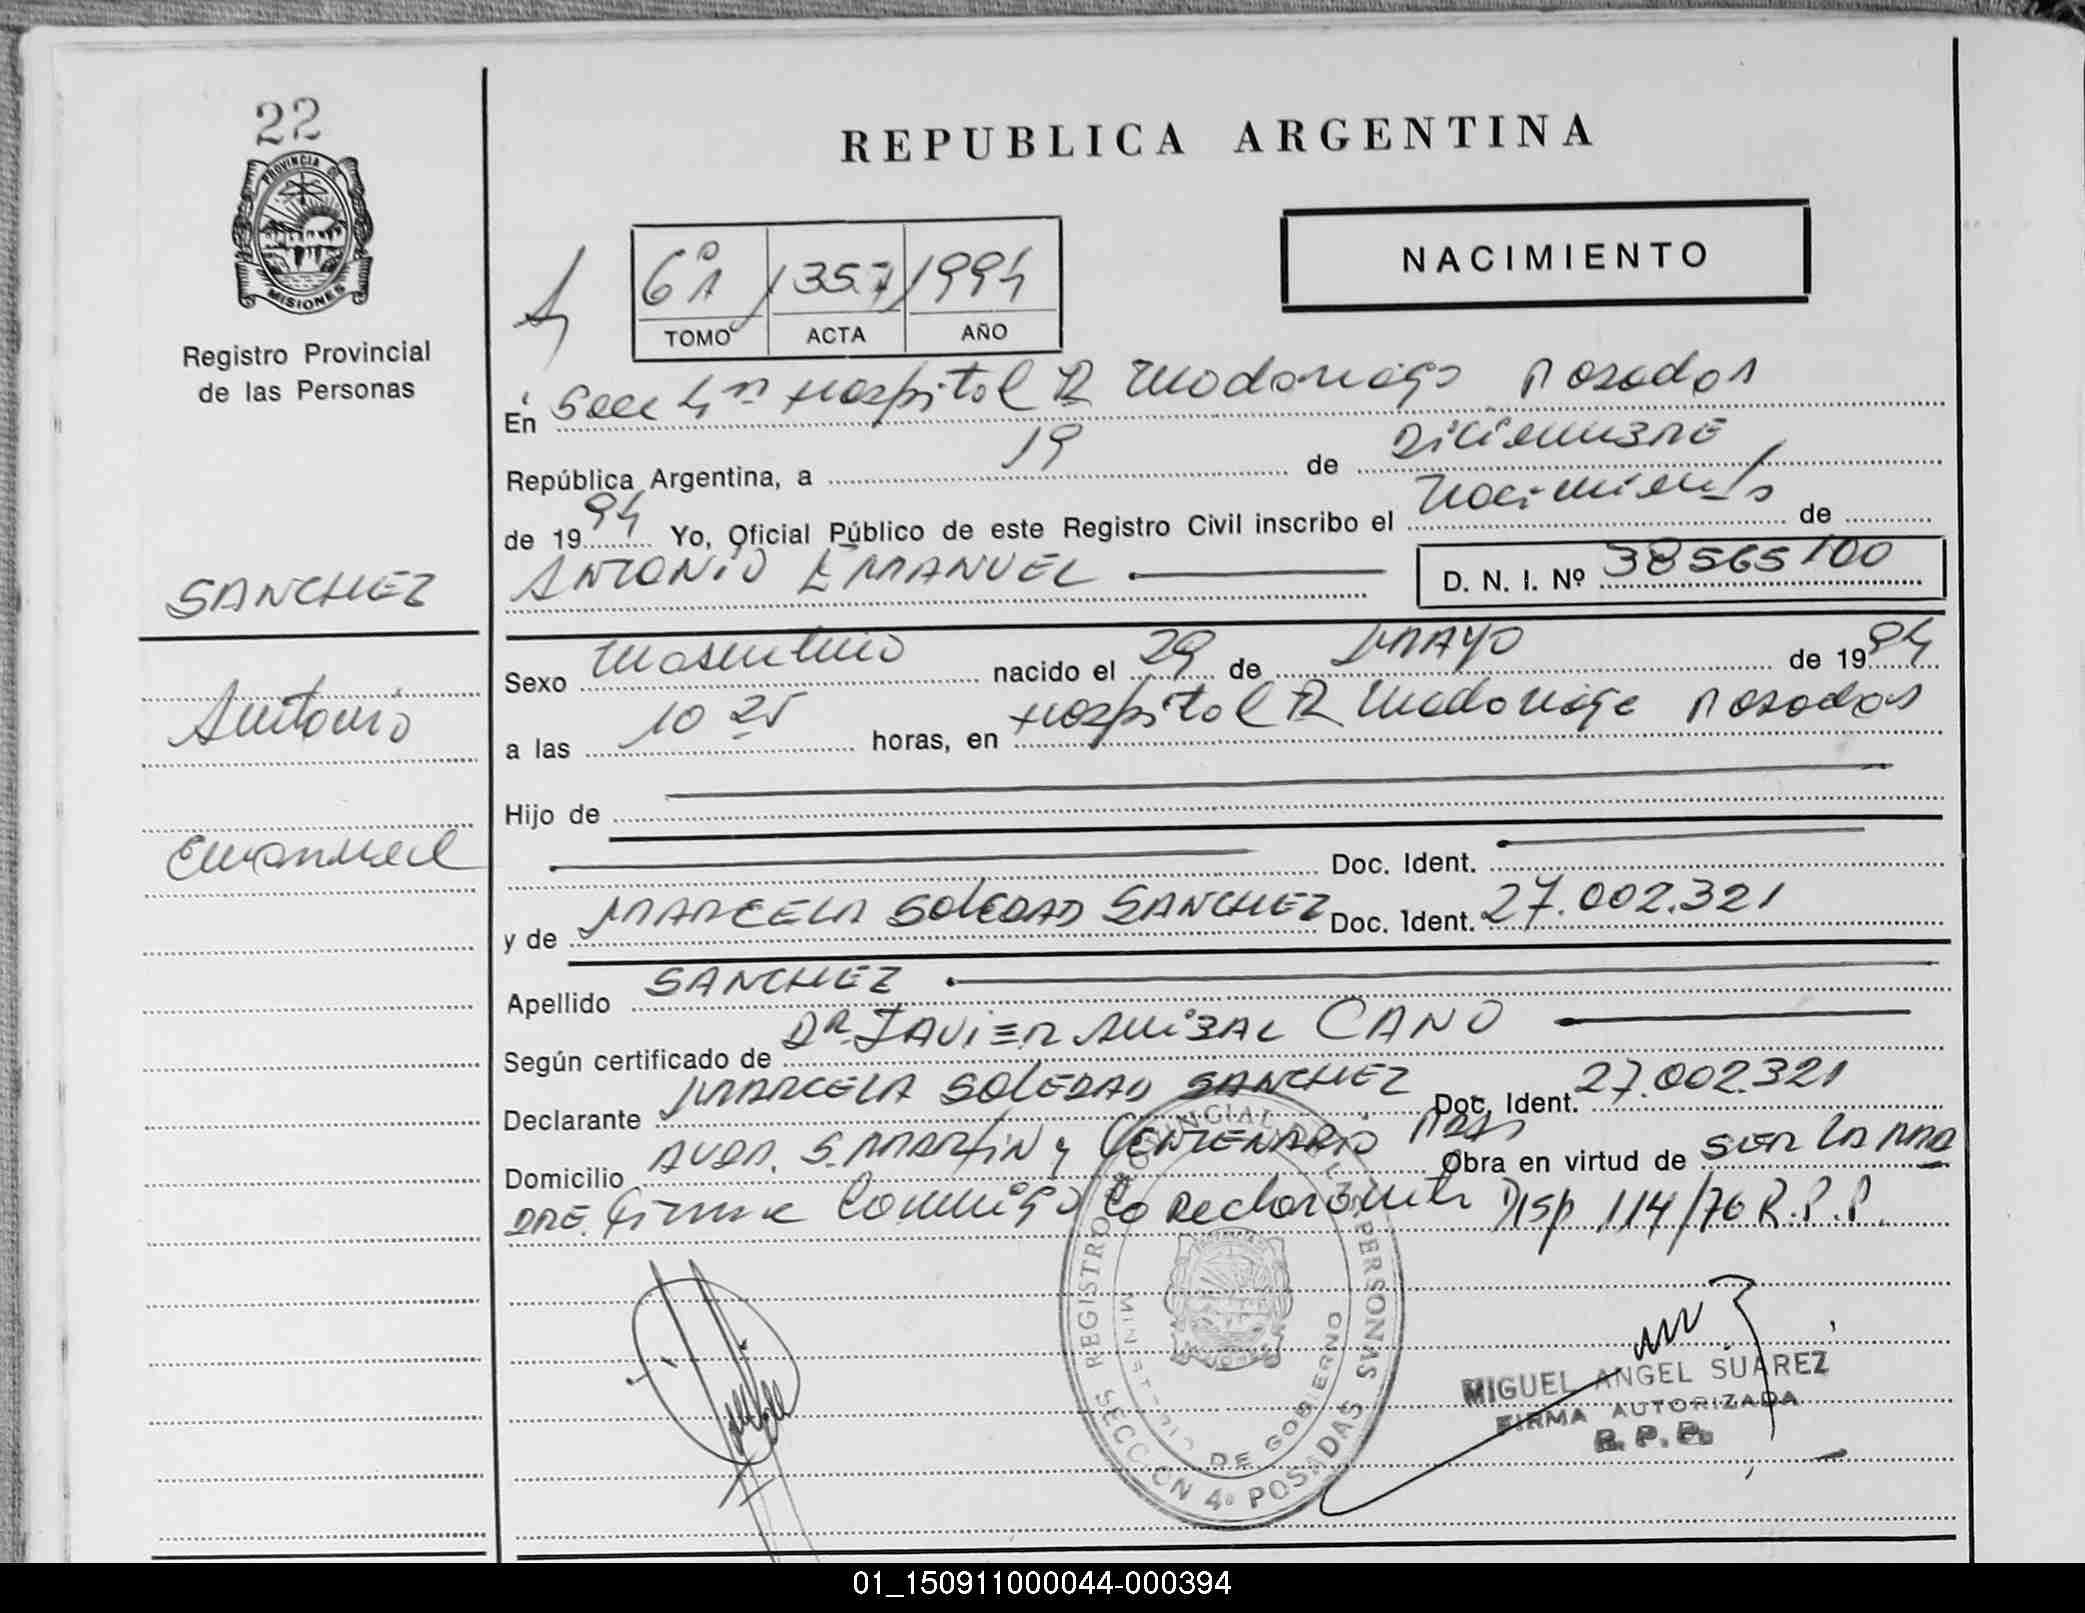 22
PROVINCIA DE
MISIONES
Registro Provincial
de las Personas
SANCHEZ
Antonio
Emanuel
REPUBLICA ARGENTINA
NACIMIENTO
6º A 1357 1994
TOMO ACTA AÑO
En Secc 4ª Hospital R Madariaga Posadas
República Argentina, a 19 de Diciembre
de 1994 Yo, Oficial Público de este Registro Civil inscribo el Nacimiento de
ANTONIO EMANUEL D. N. I. Nº 38565100
Sexo Masculino nacido el 29 de MAYO de 1994
a las 10 25 horas, en Hospital R Madariaga Posadas
Hijo de
Doc. Ident.
y de MARCELA SOLEDAD SANCHEZ Doc. Ident. 27.002.321
Apellido SANCHEZ
Según certificado de DR. JAVIER ANIBAL CANO
Declarante MARCELA SOLEDAD SANCHEZ Doc. Ident. 27.002.321
Domicilio AVDA. S. MARTIN y CENTENARIO Pdas Obra en virtud de SER LA MA
DRE. Firma Conmigo La Declarante Disp 114/76 R.P.P.
REGISTRO PROVINCIAL DE LAS PERSONAS
MINISTERIO DE GOBIERNO
SECCION 4ª POSADAS
MIGUEL ANGEL SUAREZ
FIRMA AUTORIZADA
R. P. P.
01_150911000044-000394